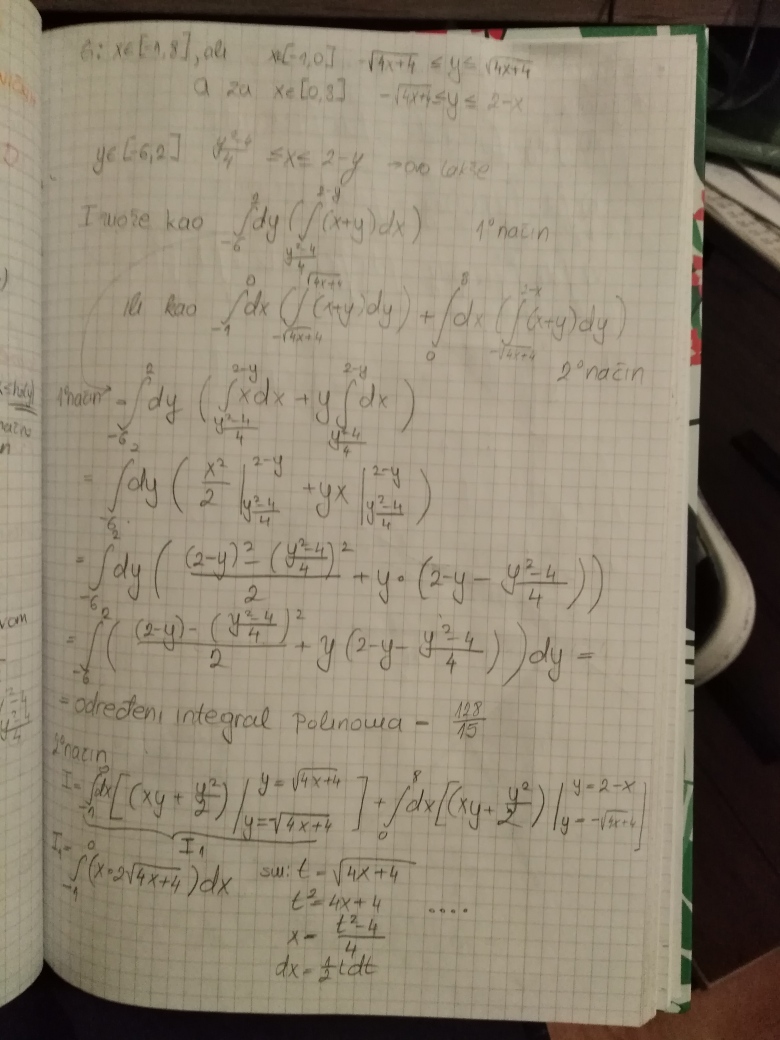 G: x∈[-1,8], ali x∈[-1,0] -√(4x+4) ≤ y ≤ √(4x+4)
a za x∈[0,8] -√(4x+4) ≤ y ≤ 2-x
y∈[-6,2] (y²-4)/4 ≤ x ≤ 2-y → ovo lakše
I može kao ∫_{-6}^{2} dy (∫_{(y²-4)/4}^{2-y} (x+y)dx) 1° način
ili kao ∫_{-1}^{0} dx (∫_{-√(4x+4)}^{√(4x+4)} (x+y)dy) + ∫_{0}^{8} dx (∫_{-√(4x+4)}^{2-x} (x+y)dy)
2° način
1° način = ∫_{-6}^{2} dy (∫_{(y²-4)/4}^{2-y} xdx + y ∫_{(y²-4)/4}^{2-y} dx)
= ∫_{-6}^{2} dy (x²/2 |_{(y²-4)/4}^{2-y} + yx |_{(y²-4)/4}^{2-y})
= ∫_{-6}^{2} dy (((2-y)² - ((y²-4)/4)²)/2 + y·(2-y - (y²-4)/4))
= ∫_{-6}^{2} (((2-y) - ((y²-4)/4)²)/2 + y(2-y - (y²-4)/4)) dy =
= određeni integral polinoma = 128/15
2° način
I = ∫_{-1}^{0} dx[(xy + y²/2) |_{y=-√(4x+4)}^{y=√(4x+4)}] + ∫_{0}^{8} dx[(xy + y²/2) |_{y=-√(4x+4)}^{y=2-x}]
I₁
I₁ = ∫_{-1}^{0} (x·2√(4x+4))dx sm: t = √(4x+4)
t² = 4x+4 ....
x = (t²-4)/4
dx = 1/2 tdt